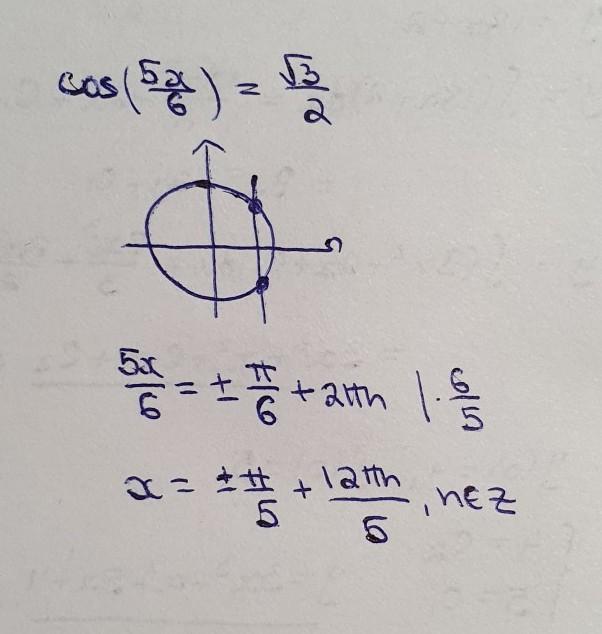 cos(5x/6) = √3/2
5x/6 = ± π/6 + 2πn | · 6/5
x = ± π/5 + 12πn/5, n∈Z